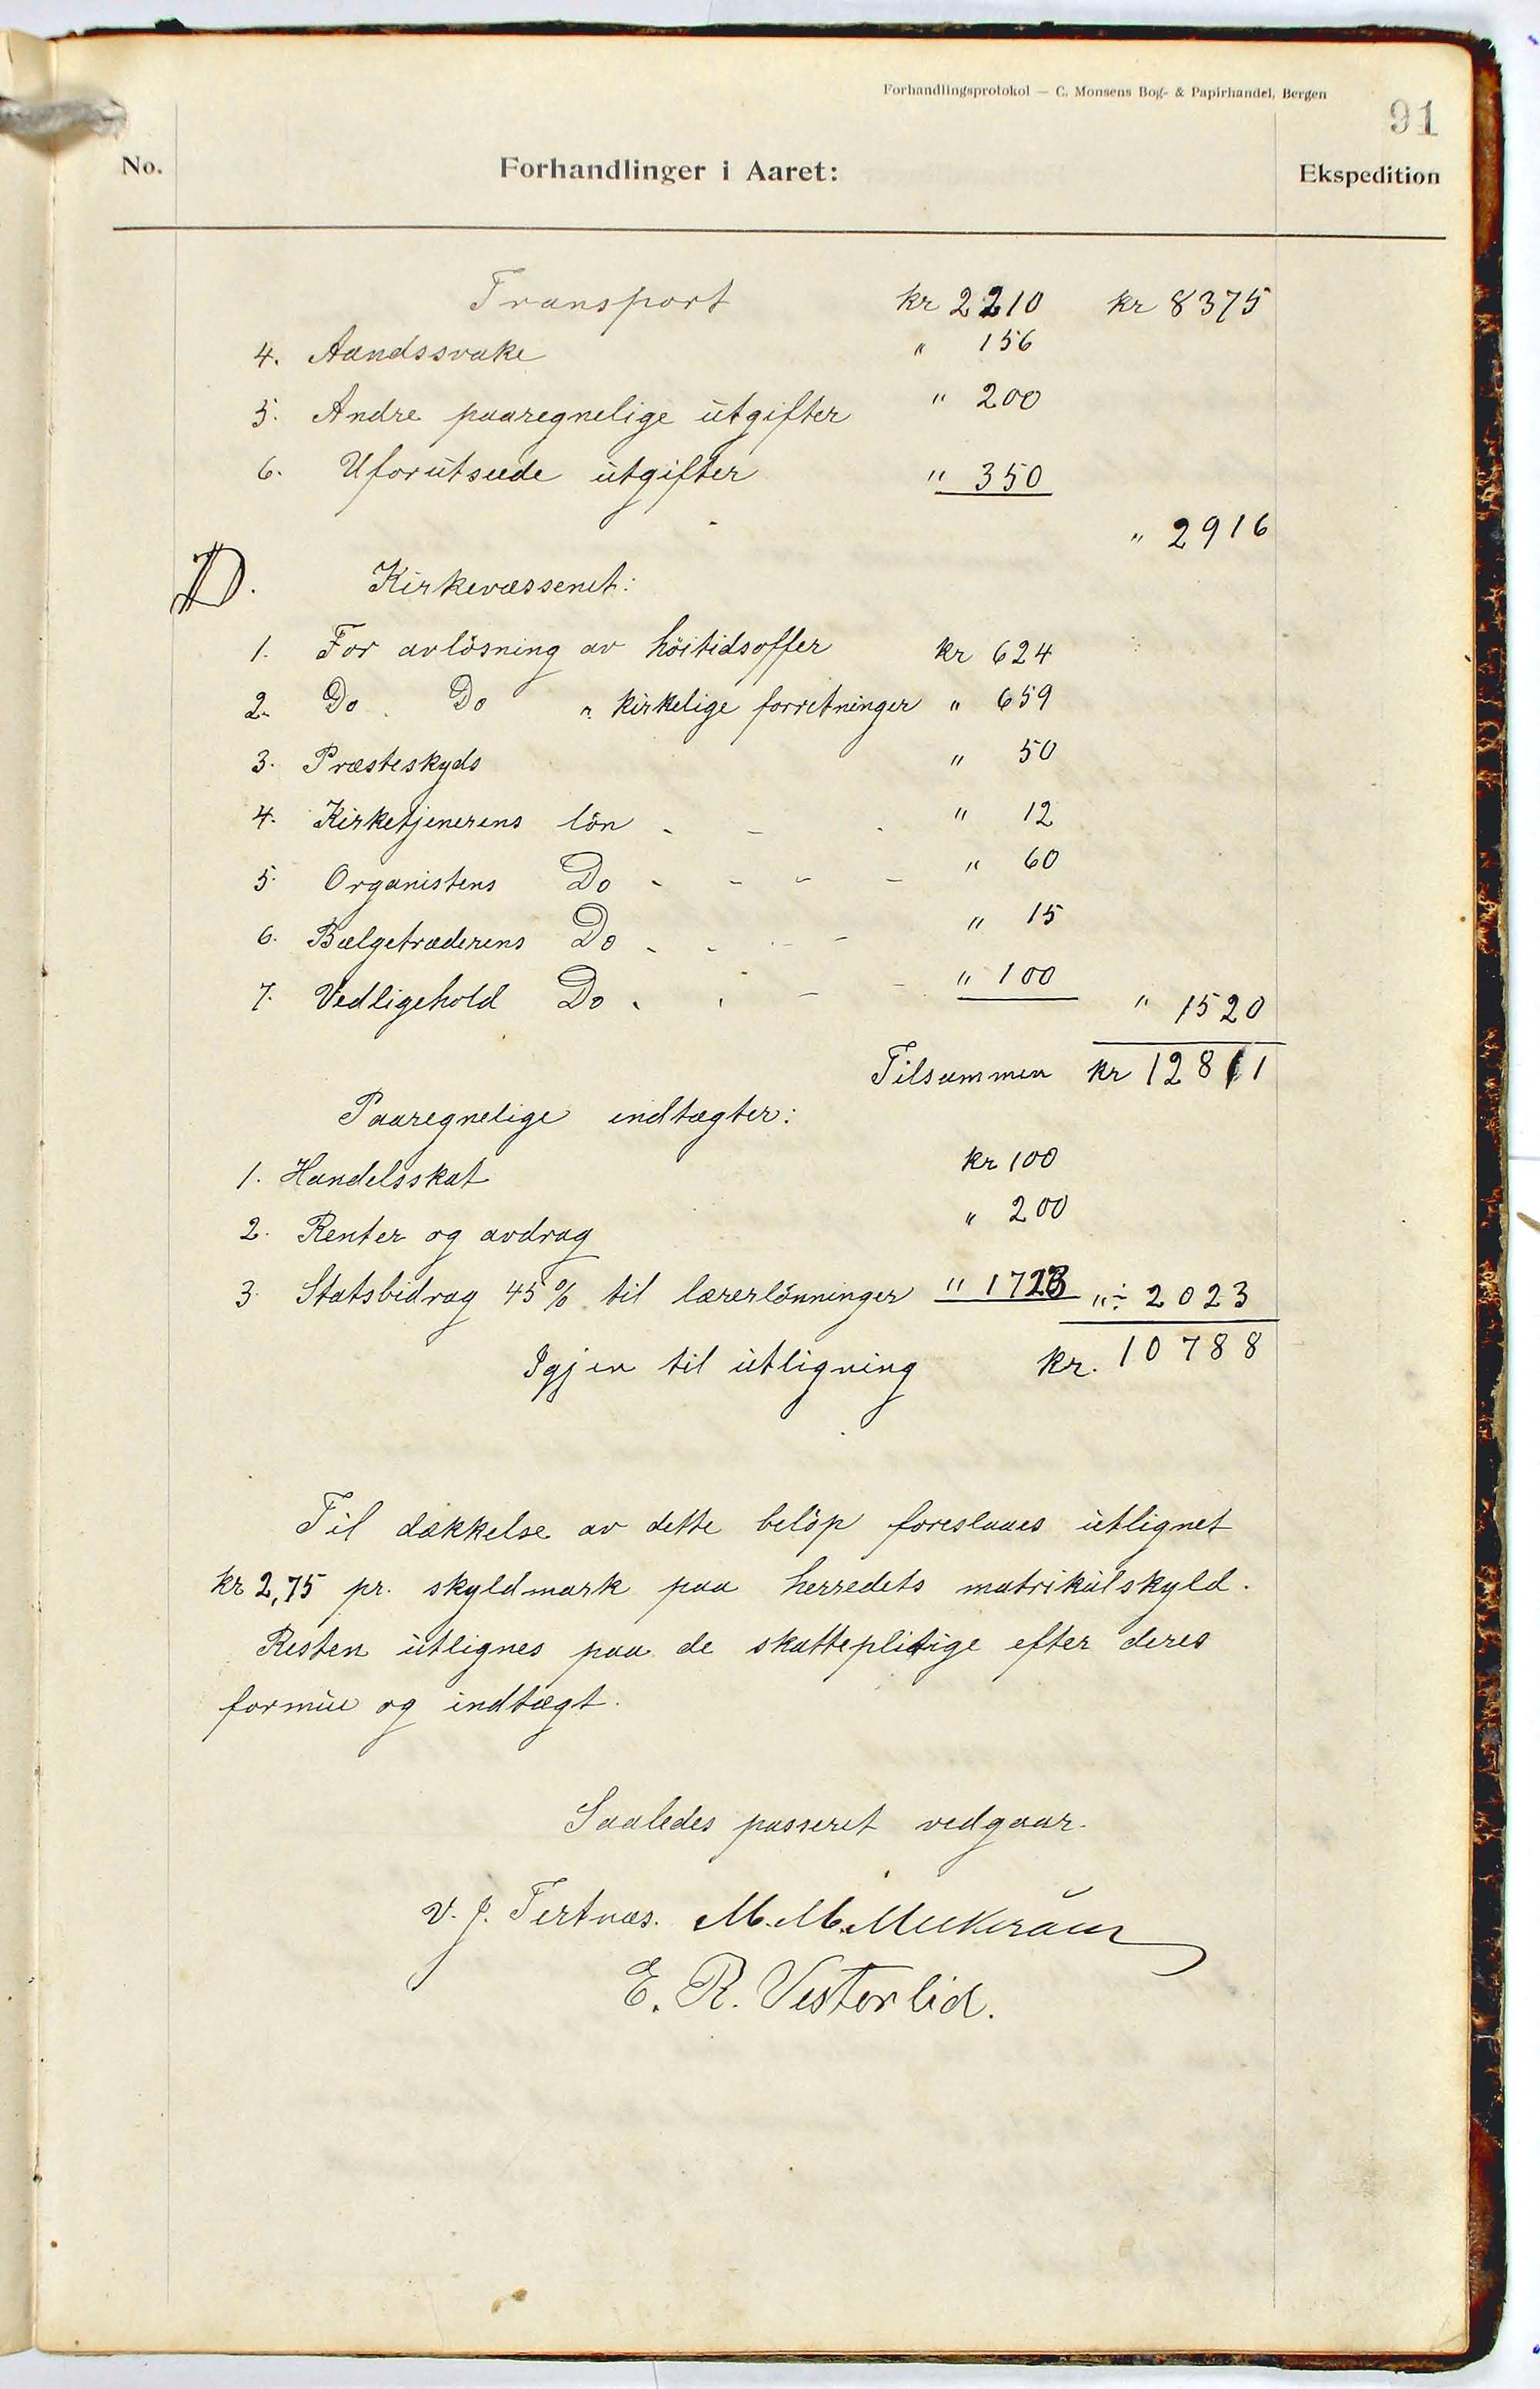 Forhandlingsprotokol — C. Monsens Bog- & Papirhandel, Bergen
91
No. Forhandlinger i Aaret: Ekspedition
Transport kr 2210 kr 8375
4. Aandssvake " 156
5. Andre paaregnelige utgifter " 200
6. Uforutseede utgifter " 350
" 2916
D. Kirkevæssenet:
1. For avlösning av höitidsoffer kr 624
2. Do Do " kirkelige forretninger " 659
3. Præsteskyds " 50
4. Kirketjenerens lön - - - " 12
5. Organistens Do - - - - " 60
6. Bælgetræderens Do - - - - " 15
7. Vedligehold Do - - - - " 100 " 1520
Tilsammen kr 12811
Paaregnelige indtægter:
1. Handelsskat kr 100
2. Renter og avdrag " 200
3. Statsbidrag 45% til lærerlönninger " 1723 " ÷ 2023
Igjen til utligning kr. 10788
Til dækkelse av dette belöp foreslaaes utlignet
kr 2,75 pr. skyldmark paa herredets matrikulskyld.
Resten utlignes paa de skattepligtige efter deres
formue og indtægt.
Saaledes passeret vedgaar.
V. J. Tertnæs. M. M.
E. R. Vesterlid.